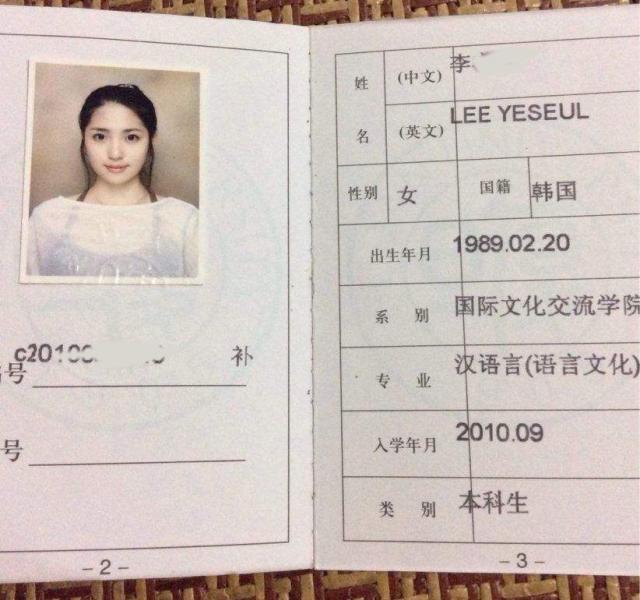 c20100
补
号
号
- 2 -
姓名
(中文) 李
(英文) LEE YESEUL
性别 女 国籍 韩国
出生年月 1989.02.20
系别 国际文化交流学院
专业 汉语言(语言文化)
入学年月 2010.09
类别 本科生
- 3 -